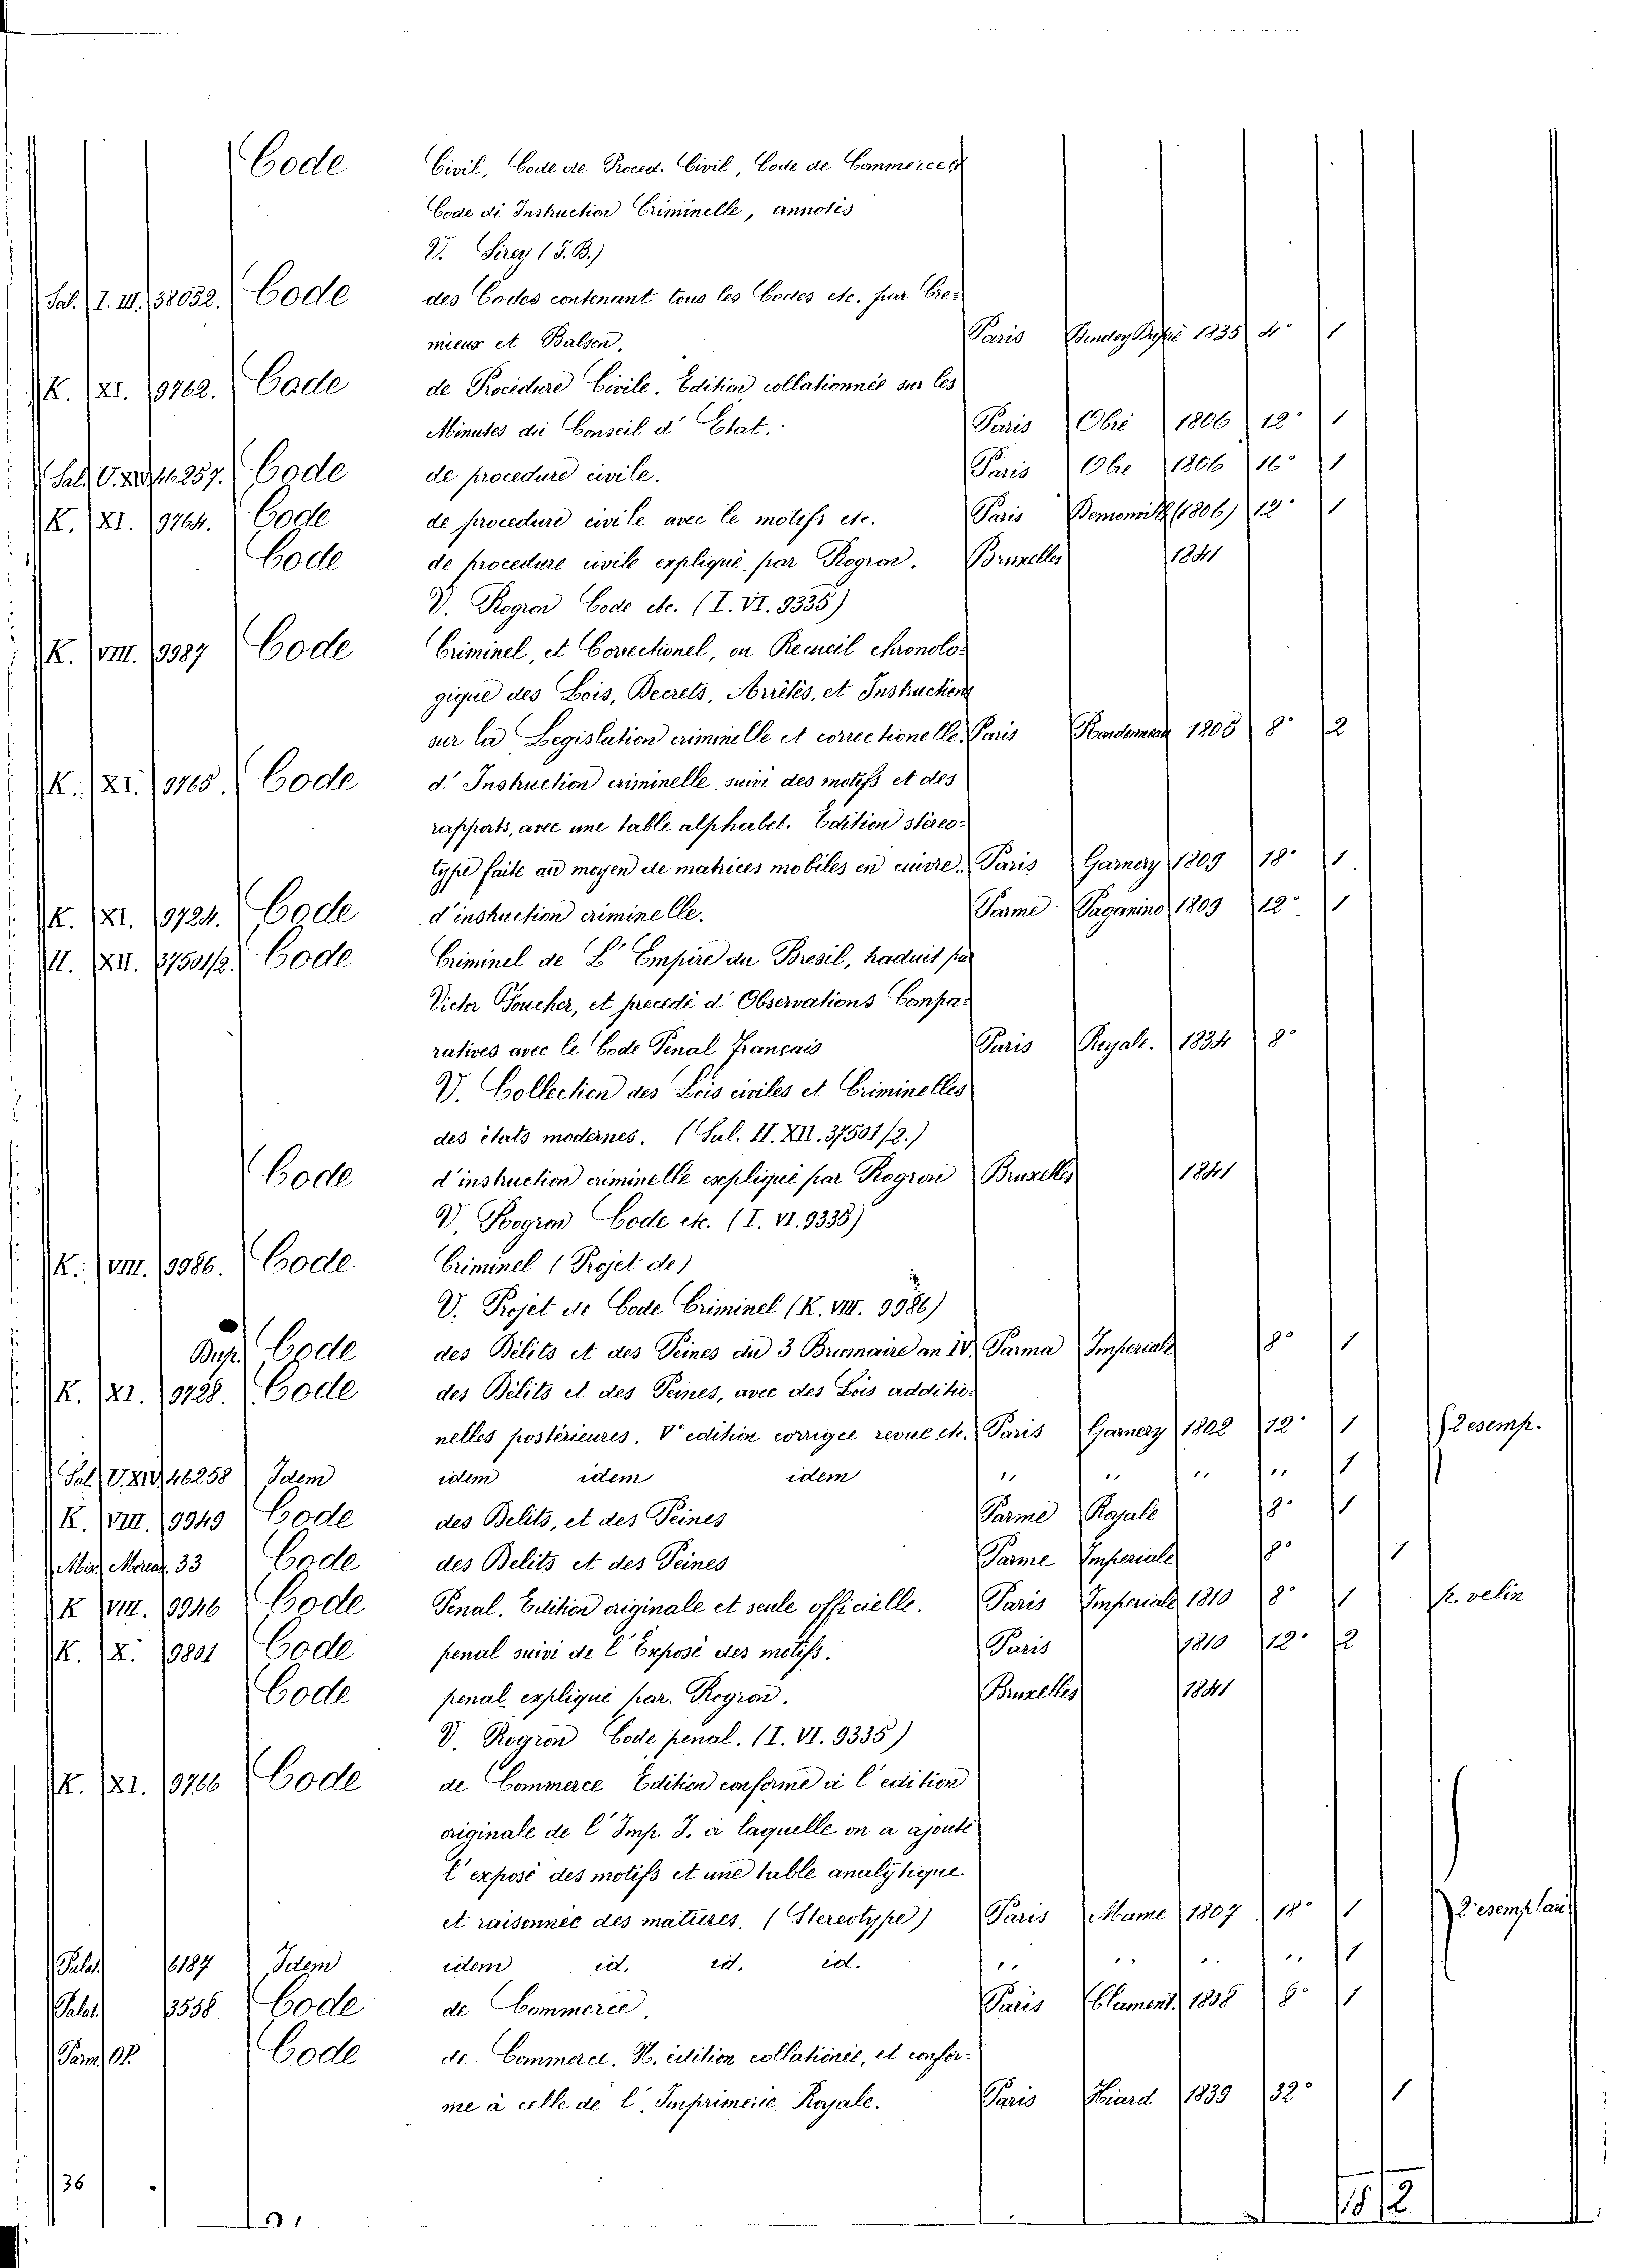 Code Civil, Code de Proced. Civil, Code de Commerce et
Code di Instruction Criminelle, annotés
V. Sirey (J. B.)
Sal. I. III. 38032. Code des Codes contenant tous les Codes etc. par Cre-
mieux et Balson, Paris 1835 4° 1
K. XI. 9762. Code de Procédure Civile. Edition collationnée sur les
Minutes du Conseil d' Etat. Paris Obré 1806 12° 1
Sal. V. XIV 46257. Code de procedure civile. Paris Obre 1806 16° 1
K. XI. 9764. Code de procedure civile avec le motifs etc. Paris (1806) 12° 1
Code de procedure civile expliqué par Rogron. Bruxelles 1841
V. Rogron Code etc. (I. VI. 9335)
K. VIII. 9987 Code Criminel, et Correctionel, ou Recueil chronolo-
gique des Lois, Decrets, Arrêtés, et Instructions
sur la Legislation criminelle et correctionelle. Paris 1805 8° 2
K. XI. 9765. Code d' Instruction criminelle, suivi des motifs et des
rapports, avec une table alphabet. Edition stéreo-
type faite au moyen de matrices mobiles en cuivre. Paris Garnery 1809 18° 1
K. XI. 9724. Code d'instruction criminelle. Parme Paganino 1809 12° 1
II. XII. 37501/2. Code Criminel de L' Empire du Bresil, traduit par
Victor Foucher, et precedé d' Observations Compa-
ratives avec le Code Penal Français Paris Royale. 1834 8°
V. Collection des Lois civiles et Criminelles
des états modernes. (Sal. II. XII. 37501/2.)
Code d'instruction criminelle expliqué par Rogron Bruxelles 1841
V. Rogron Code etc. (I. VI. 9335)
K. VIII. 9986. Code Criminel (Projet de)
V. Projet de Code Criminel (K. VIII. 9986)
Dup. Code des Délits et des Peines du 3 Brumaire an IV. Parma Imperiale 8° 1
K. XI. 9728. Code des Délits et des Peines, avec des Lois additio-
nelles postérieures. V edition corrigée revue etc. Paris Garnery 1802 12° 1 2 esemp.
Sal. V. XIV 46258 Idem idem idem idem " " " " 1
K. VIII. 9949 Code des Delits, et des Peines Parme Royale 8° 1
33 Code des Delits et des Peines Parme Imperiale 8° 1
K VIII. 9946 Code Penal. Edition originale et seule officielle. Paris Imperiale 1810 8° 1 p. velin
K. X. 9801 Code penal suivi de l'Exposé des motifs. Paris 1810 12° 2
Code penal expliqué par Rogron. Bruxelles 1841
V. Rogron Code penal. (I. VI. 9335)
K. XI. 9766 Code de Commerce Edition conforme à l'edition
originale de l' Imp. I. à laquelle on a ajouté
l'exposé des motifs et une table analytique
et raisonnée des matieres. (Stereotype) Paris Mame 1807 18° 1 2 esemplari
Palat. 6187 Idem idem id. id. id. " " " " 1
Palat. 3558 Code de Commerce. Paris 1808 8° 1
Code de Commerce. N. edition collationée, et confor-
me à celle de l' Imprimerie Royale. Paris Hiard 1839 32° 1
36
18 2